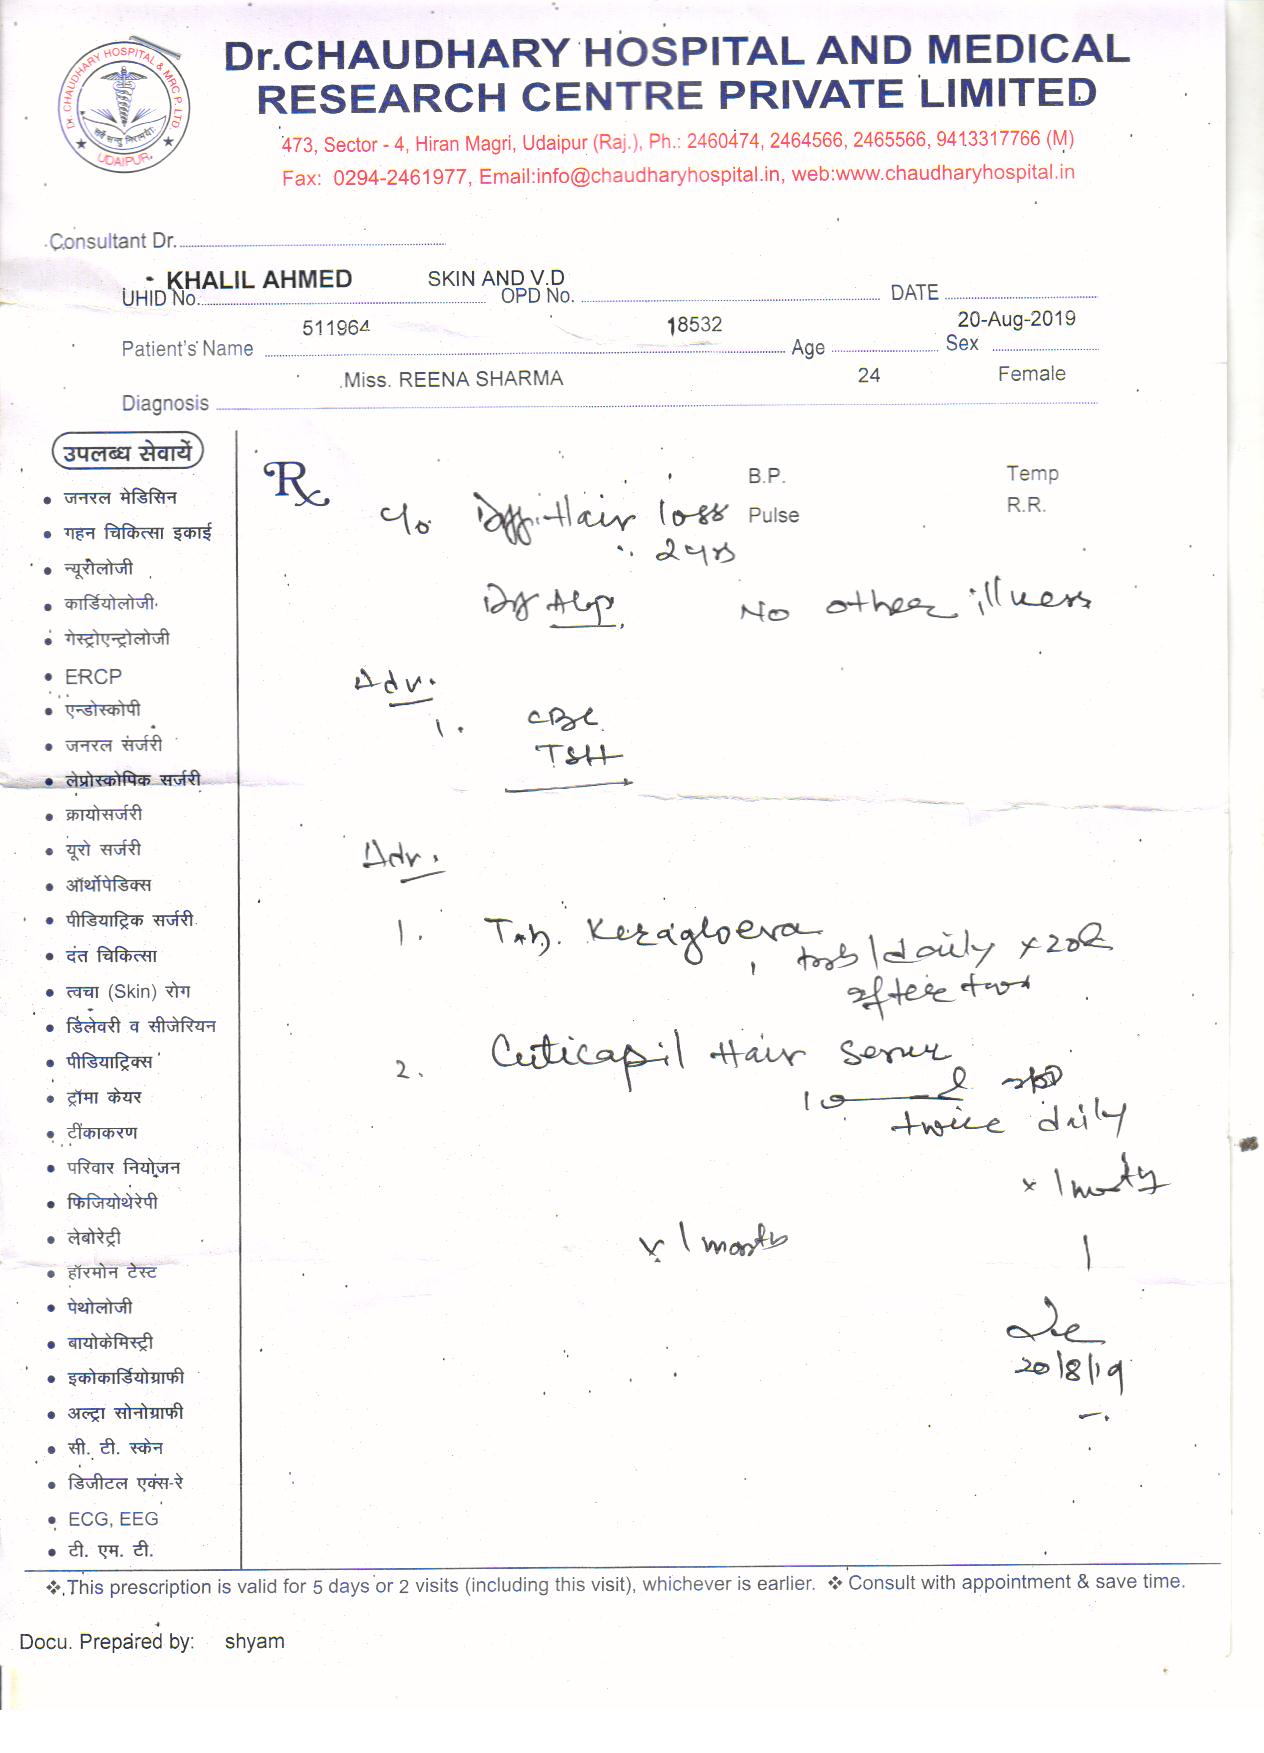 Dr.CHAUDHARY HOSPITAL AND MEDICAL
RESEARCH CENTRE PRIVATE LIMITED
473, Sector - 4, Hiran Magri, Udaipur (Raj.), Ph.: 2460474, 2464566, 2465566, 9413317766 (M)
Fax: 0294-2461977, Email:info@chaudharyhospital.in, web:www.chaudharyhospital.in
DR. CHAUDHARY HOSPITAL & MRC P. LTD.
सर्वे सन्तु निरामया:
UDAIPUR
Consultant Dr.
KHALIL AHMED SKIN AND V.D
UHID No. OPD No. DATE
511964 18532 20-Aug-2019
Patient's Name Age Sex
Miss. REENA SHARMA 24 Female
Diagnosis
उपलब्ध सेवायें
जनरल मेडिसिन
गहन चिकित्सा इकाई
न्यूरोलोजी
कार्डियोलोजी
गेस्ट्रोएन्ट्रोलोजी
ERCP
एन्डोस्कोपी
जनरल सर्जरी
लेप्रोस्कोपिक सर्जरी
क्रायोसर्जरी
यूरो सर्जरी
ऑर्थोपेडिक्स
पीडियाट्रिक सर्जरी
दंत चिकित्सा
त्वचा (Skin) रोग
डिलेवरी व सीजेरियन
पीडियाट्रिक्स
ट्रॉमा केयर
टीकाकरण
परिवार नियोजन
फिजियोथेरेपी
लेबोरेट्री
हॉरमोन टेस्ट
पेथोलोजी
बायोकेमिस्ट्री
इकोकार्डियोग्राफी
अल्ट्रा सोनोग्राफी
सी. टी. स्केन
डिजीटल एक्स-रे
ECG, EEG
टी. एम. टी.
Rx
B.P. Temp
Pulse R.R.
c/o Diff. Hair loss
2 yrs
No other illness
Adv.
1. CBC
TSH
Adv.
1. Tab. Keraglo eva
1 tab/daily x 20d
after
2. Cuticapil Hair serum
twice daily
x 1 month
x 1 month
20/8/19
❖ This prescription is valid for 5 days or 2 visits (including this visit), whichever is earlier. ❖ Consult with appointment & save time.
Docu. Prepared by: shyam